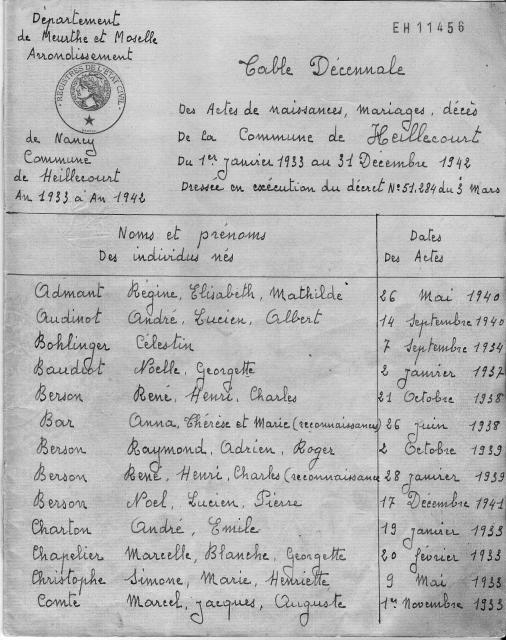 Département
de Meurthe et Moselle
Arrondissement
REGISTRES DE L'ETAT CIVIL
de Nancy
Commune
de Heillecourt
An 1933 à An 1942
EH11456
Table Décennale
Des Actes de naissances, mariages, décès
De la Commune de Heillecourt
Du 1er janvier 1933 au 31 Décembre 1942
Dressée en exécution du décret No 51.284 du 3 Mars
Noms et prénoms
Des individus nés
Dates
Des Actes
Admant Régine, Elisabeth, Mathilde 26 Mai 1940
Audinot André, Lucien, Albert 14 Septembre 1940
Bohlinger Célestin 7 Septembre 1934
Baudiot Noelle, Georgette 2 janvier 1937
Berson René, Henri, Charles 21 Octobre 1938
Bar Anna, Thérèse et Marie (reconnaissance) 26 juin 1938
Berson Raymond, Adrien, Roger 2 Octobre 1939
Berson René, Henri, Charles (reconnaissance 28 janvier 1939
Berson Noel, Lucien, Pierre 17 Décembre 1941
Charton André, Emile 19 janvier 1933
Chapelier Marcelle, Blanche, Georgette 20 février 1933
Christophe Simone, Marie, Henriette 9 Mai 1933
Comte Marcel, jacques, Auguste 1er Novembre 1933